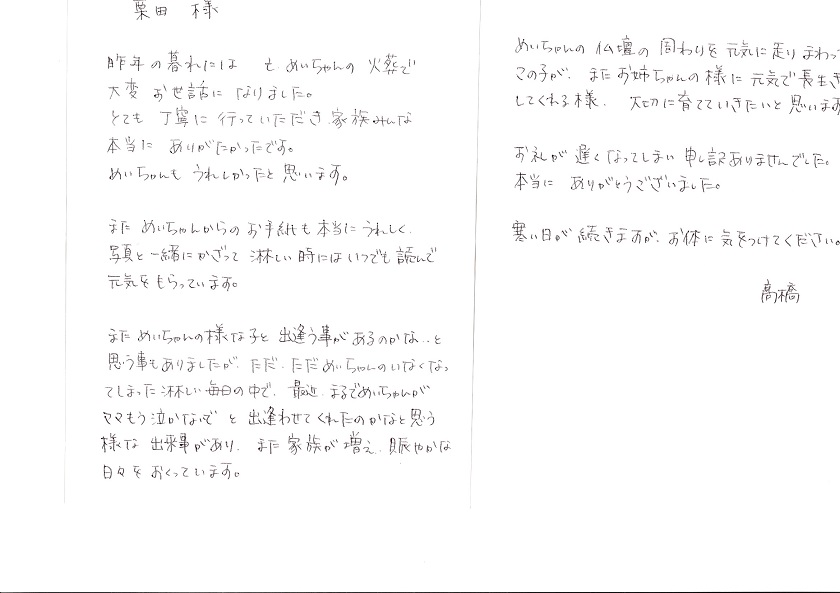 栗田 様
昨年の暮れには も めいちゃんの 火葬で
大変 お世話に なりました。
とても 丁寧に 行っていただき 家族みんな
本当に ありがたかったです。
めいちゃんも うれしかったと 思います。
また めいちゃんからの お手紙も 本当に うれしく、
写真と 一緒に かざって 淋しい 時には いつでも 読んで
元気を もらっています。
また めいちゃんの 様な 子と 出逢う事が あるのかな..と
思う事も ありましたが、ただ、ただ めいちゃんの いなくなっ
てしまった 淋しい 毎日の 中で、最近、まるで めいちゃんが
ママ もう 泣かないで と 出逢わせて くれたのかなと 思う
様な 出来事が あり、また 家族が 増え、賑やかな
日々を おくっています。
めいちゃんの 仏壇の 周わりを 元気に 走り まわっ
マの子が、また お姉ちゃんの 様に 元気で 長生き
してくれる 様、大切に 育てて いきたいと 思います
お礼が 遅く なってしまい 申し訳ありませんでした。
本当に ありがとうございました。
寒い日が 続きますが、お体に 気をつけて ください。
高橋